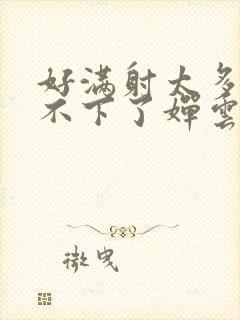 好满射太多
不下了婵雲
微曳